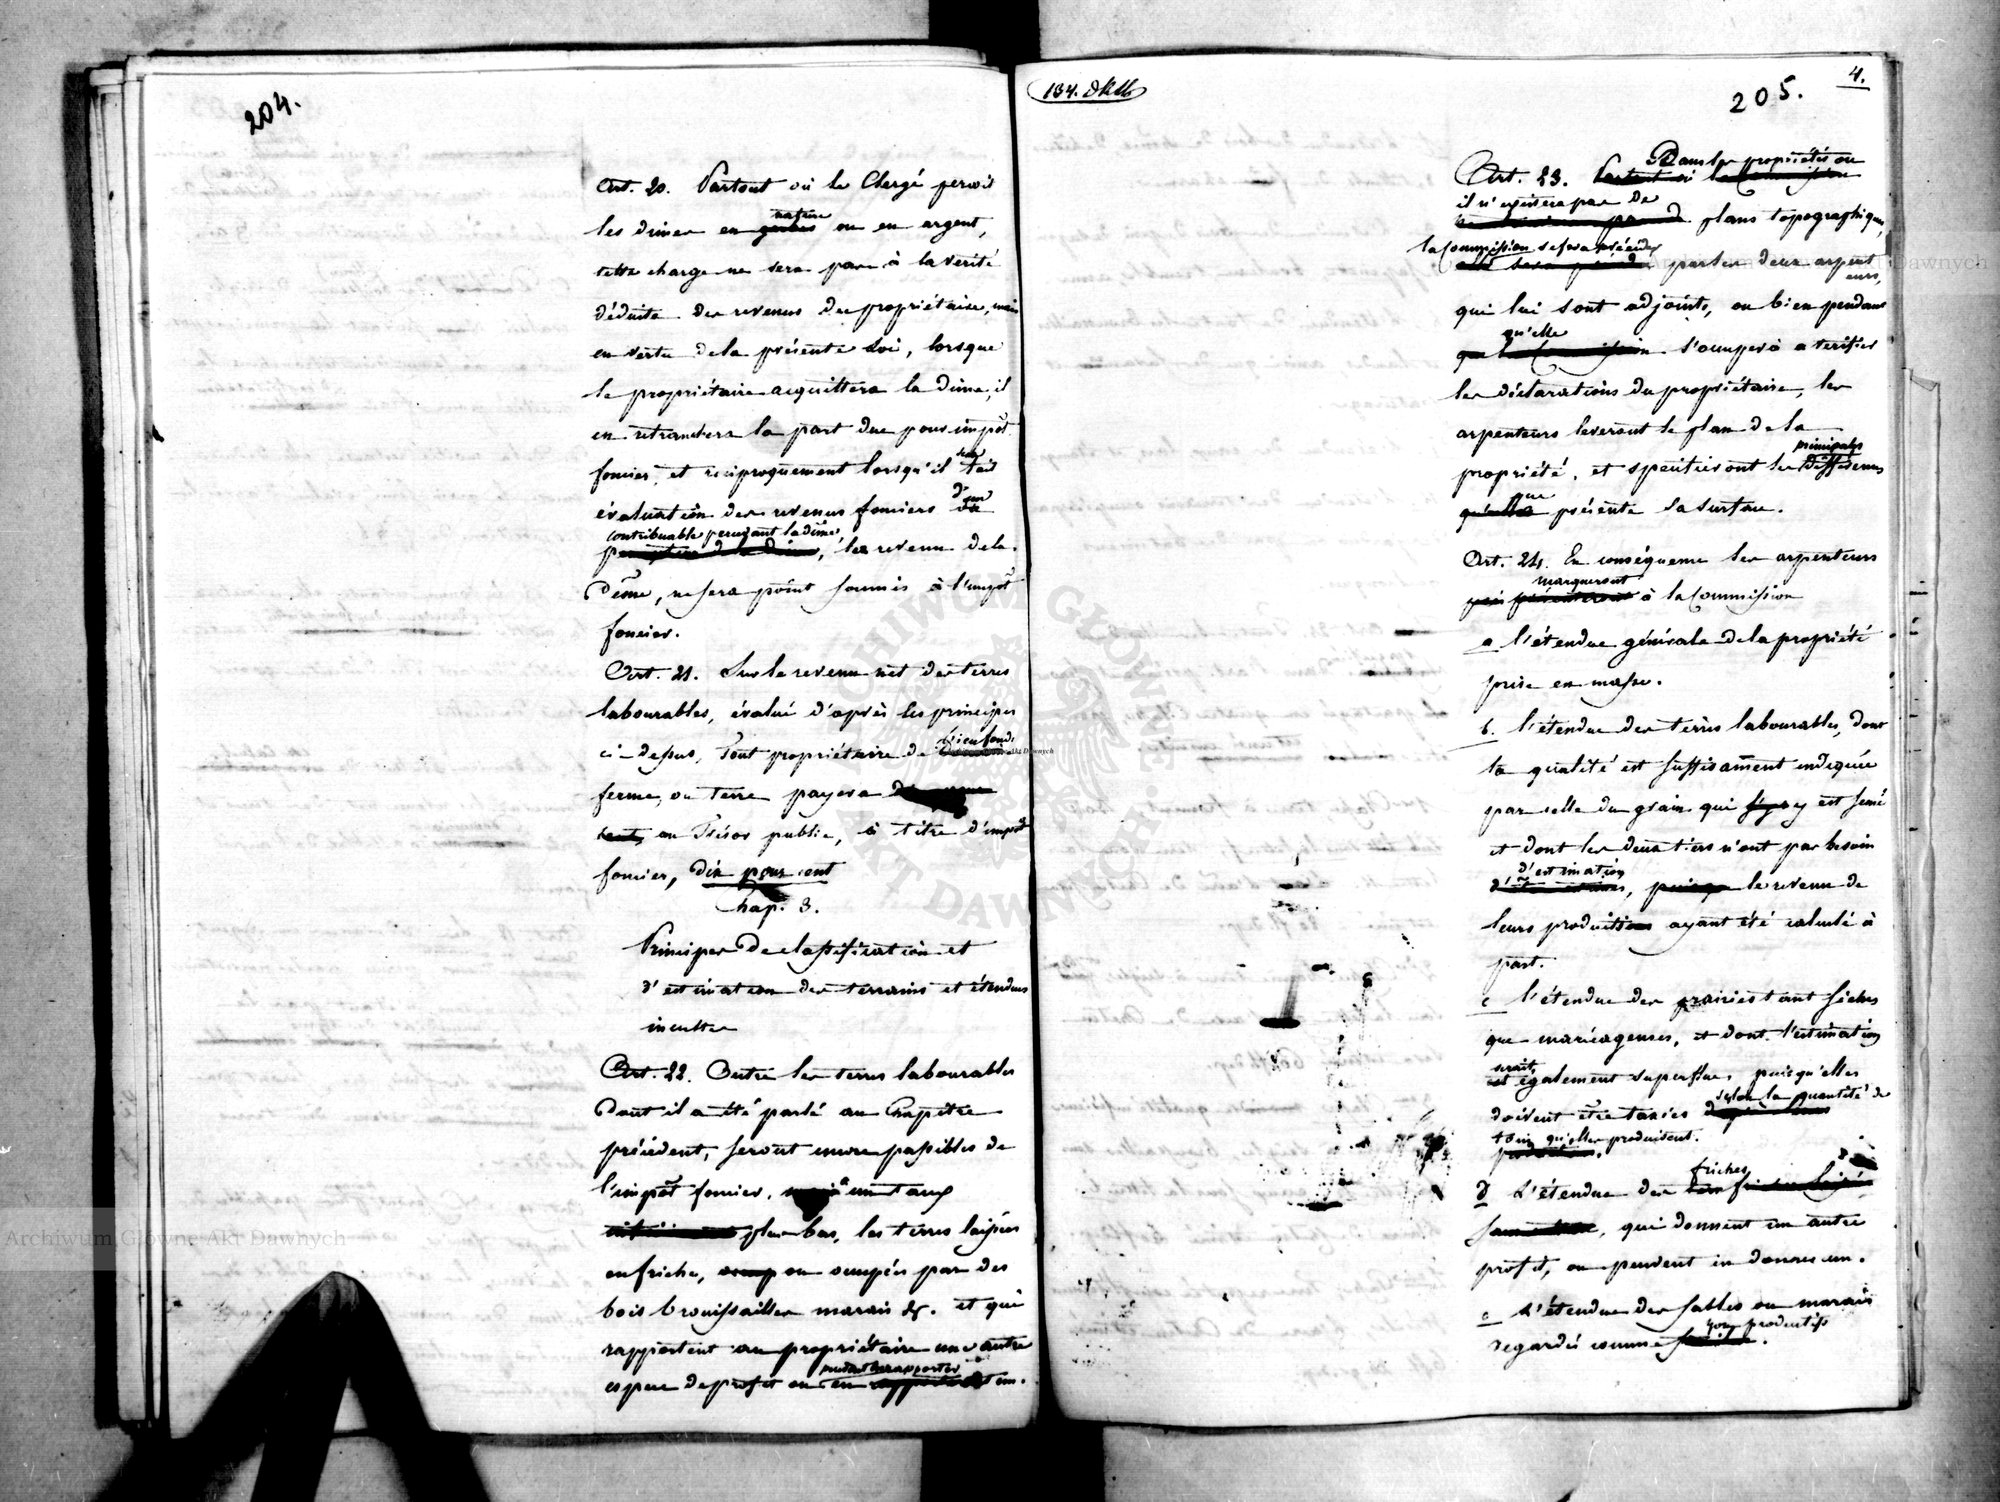 204.
Art. 20. Partout où le Clergé percoit
nature
les dimes en gerbes ou en argent,
cette charge ne sera pas à la verité
déduite des revenus du propriétaire, mais
en vertu de la présente Loi, lorsque
le propriétaire acquittera la dime, il
en retranchera la part due pour impôt
foncier, et réciproquement lorsqu'il
évaluation des revenus fonciers d'un
contribuable percevant la dime
percepteur de la dime, les revenu de la
Dime, ne sera point soumis à l'impôt
foncier.
Art. 21. Sur le revenu net des terres
labourables, évalué d'après les principes
ci-dessus, Tout propriétaire de
bien fonds
ferme, ou terre payera
au Trésor public, à titre d'impôt
foncier, dix pour cent
Chap. 3.
Principes de classification et
d'estimation des terrains et étendues
incultes
Art. 22. Outre les terres labourables
Dont il a été parlé au Chapitre
précédent, seront encore passibles de
l'impôt foncier, à un taux
plus bas, les terres laissées
en friche, ou occupées par des
bois broussailles marais &. et qui
rapportent au propriétaire une autre
peuvent en rapporter
espece de profit ou en un.
134.
4.
205.
Dans les propriétés ou
Art. 23. Partout où la Commission
il n'existera pas de
plans topographiques,
la Commission se fera précéder
elle sera précédée par les deux arpent
eurs,
qui lui sont adjoints, ou bien pendant
qu'elle
que la Commission s'occupera a verifier
les déclarations du propriétaire, les
arpenteurs leveront le plan de la
principales
propriété, et specifieront les differences
que
qu'elle présente la surface.
Art. 24. En conséquence les arpenteurs
marqueront
présenteront à la Commission
a l'étendue générale de la propriété
prise en masse.
b. l'étendue des terres labourables, dont
la qualité est suffisamment indiquée
par celle du grain qui y est semé
et dont les deux tiers n'ont pas besoin
d'estimation
d'être estimés, puisque le revenu de
leurs productions ayant été calculé à
part.
c l'étendue des prairies tant sèches
que marécageuses, et dont l'estimation
serait
est également superflue, puisqu'elles
selon la quantité de
doivent être taxées
foin qu'elles produisent.
production.
friches
d L'étendue des
, qui donnent un autre
profit, ou peuvent en donner un.
e L'étendue des sables ou marais
non productifs
regardés comme .
Archiwum Główne Akt Dawnych